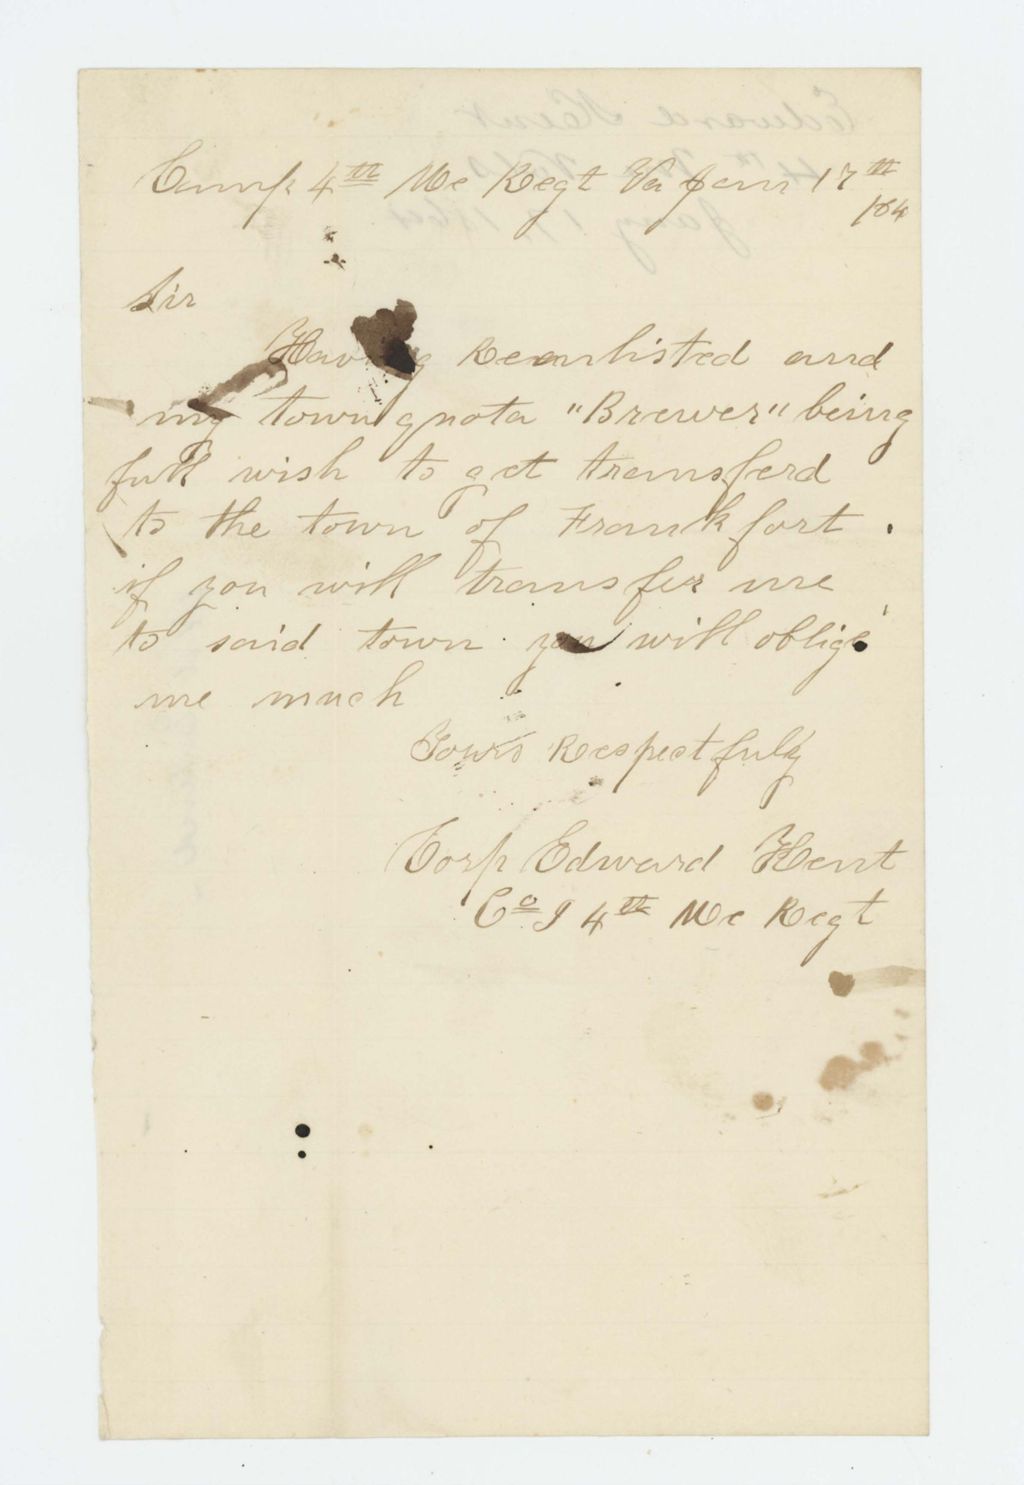 Camp 4th Me Regt Va Jan 17th
/64
Sir
Having Reenlisted and
my town quota "Brewer" being
full wish to get transferd
to the town of Frankfort .
if you will transfer me
to said town you will oblige
me much
Yours Respectfuly
Corp Edward Kent
Co I 4th Me Regt